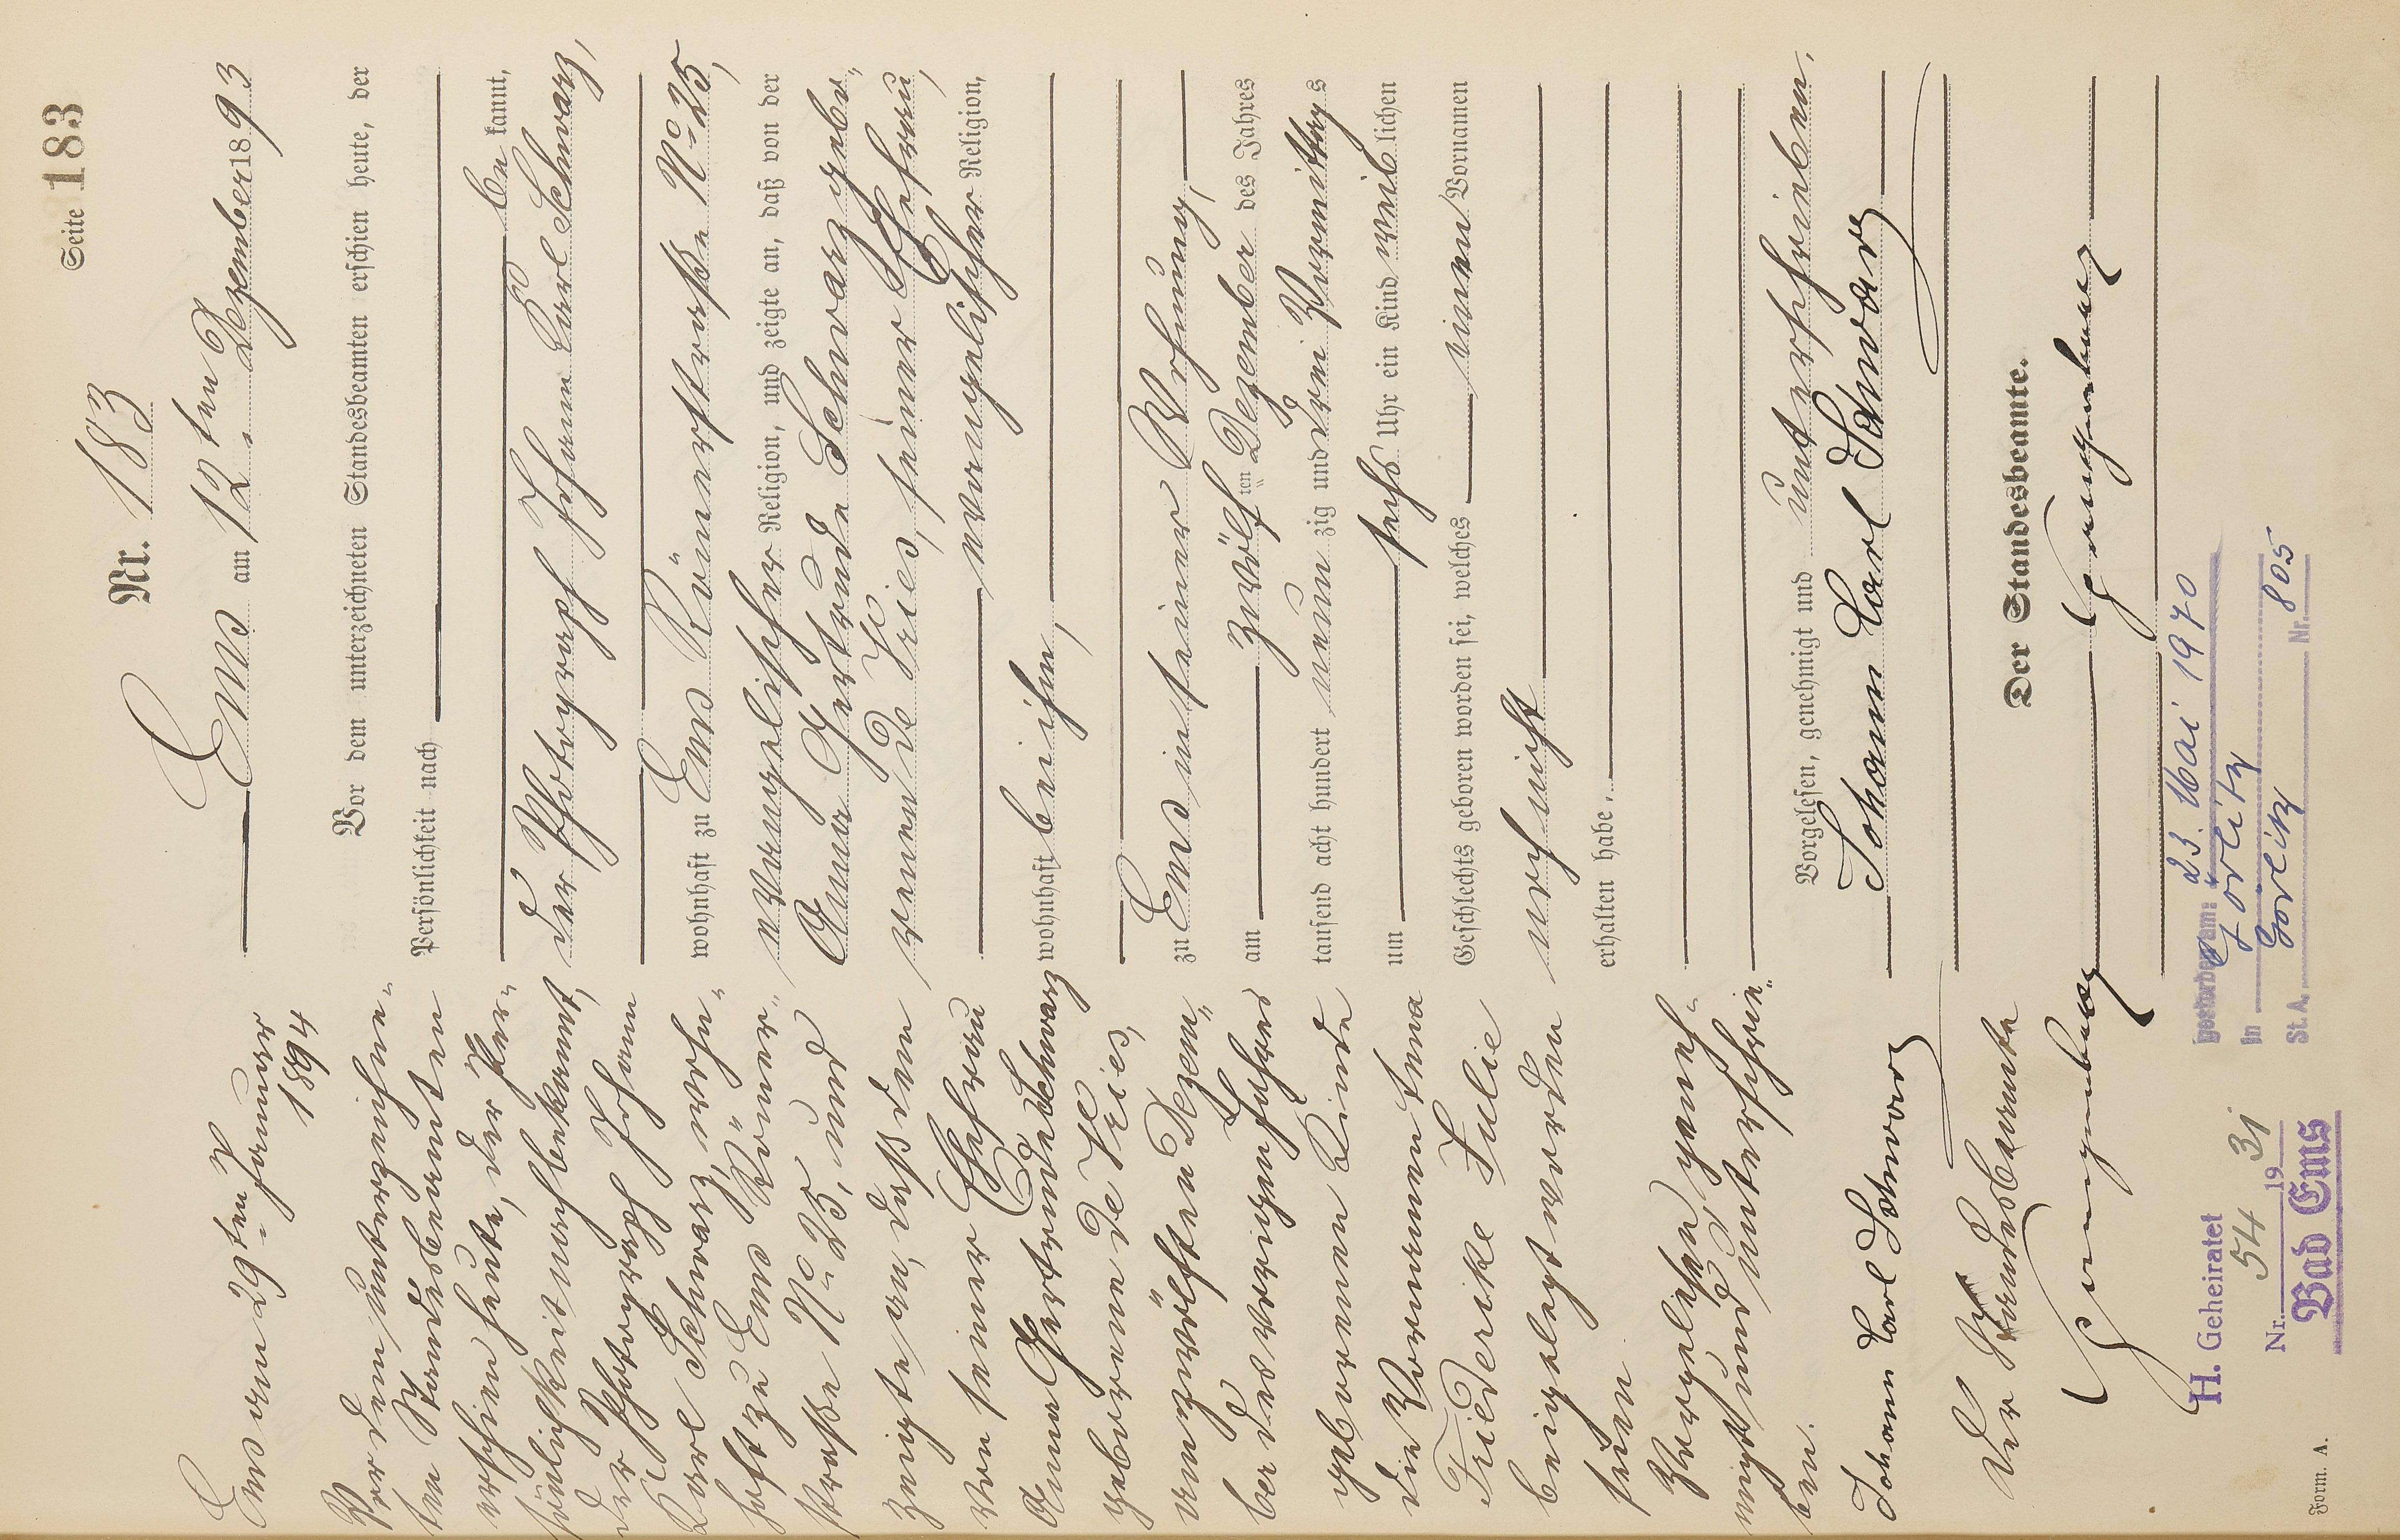 Seite 183
Nr. 183
Ems am 12ten Dezember 1893
Vor dem unterzeichneten Standesbeamten erschien heute, der
Persönlichkeit nach
be kannt,
der Photograph Johann Carl Schwarz,
wohnhaft zu Ems Römerstraße No 25,
evangelischer Religion, und zeigte an, daß von der
Anna Gertrude Schwarz gebo-
renen de Vries, seiner Ehefrau,
evangelischer Religion,
wohnhaft bei ihm,
zu Ems in seiner Wohnung,
am zwölf ten Dezember des Jahres
tausend acht hundert neun zig und drei Vormittags
um sechs Uhr ein Kind weib lichen
Geschlechts geboren worden sei, welches einen Vornamen
noch nicht
erhalten habe.
Vorgelesen, genehmigt und unterschrieben.
Johann Carl Schwarz
Der Standesbeamte.
Ems am 29ten Januar
1894
Vor dem unterzeichne-
ten Standesbeamten
erschien heute, der Per-
sönlichkeit nach bekannt,
der Photograph Johann
Carl Schwarz, wohn-
haft zu Ems Römer-
straße No 25, und
zeigte an, daß dem
von seiner Ehefrau
Anna Gertrude Schwarz
geborene de Vries,
am zwölften Dezem-
ber des vorigen Jahres
geborenen Kinde
die Vornamen
Friederike Julie
beigelegt worden
seien.
Vorgelesen, geneh-
migt und unterschrie-
ben.
Johann Carl Schwarz
Der Standesbeamte
gestorben am: 23. Mai 1970
in Görlitz
St. A. Görlitz Nr. 805
H. Geheiratet
Nr. 54 19 31
Bad Ems
Form. A.